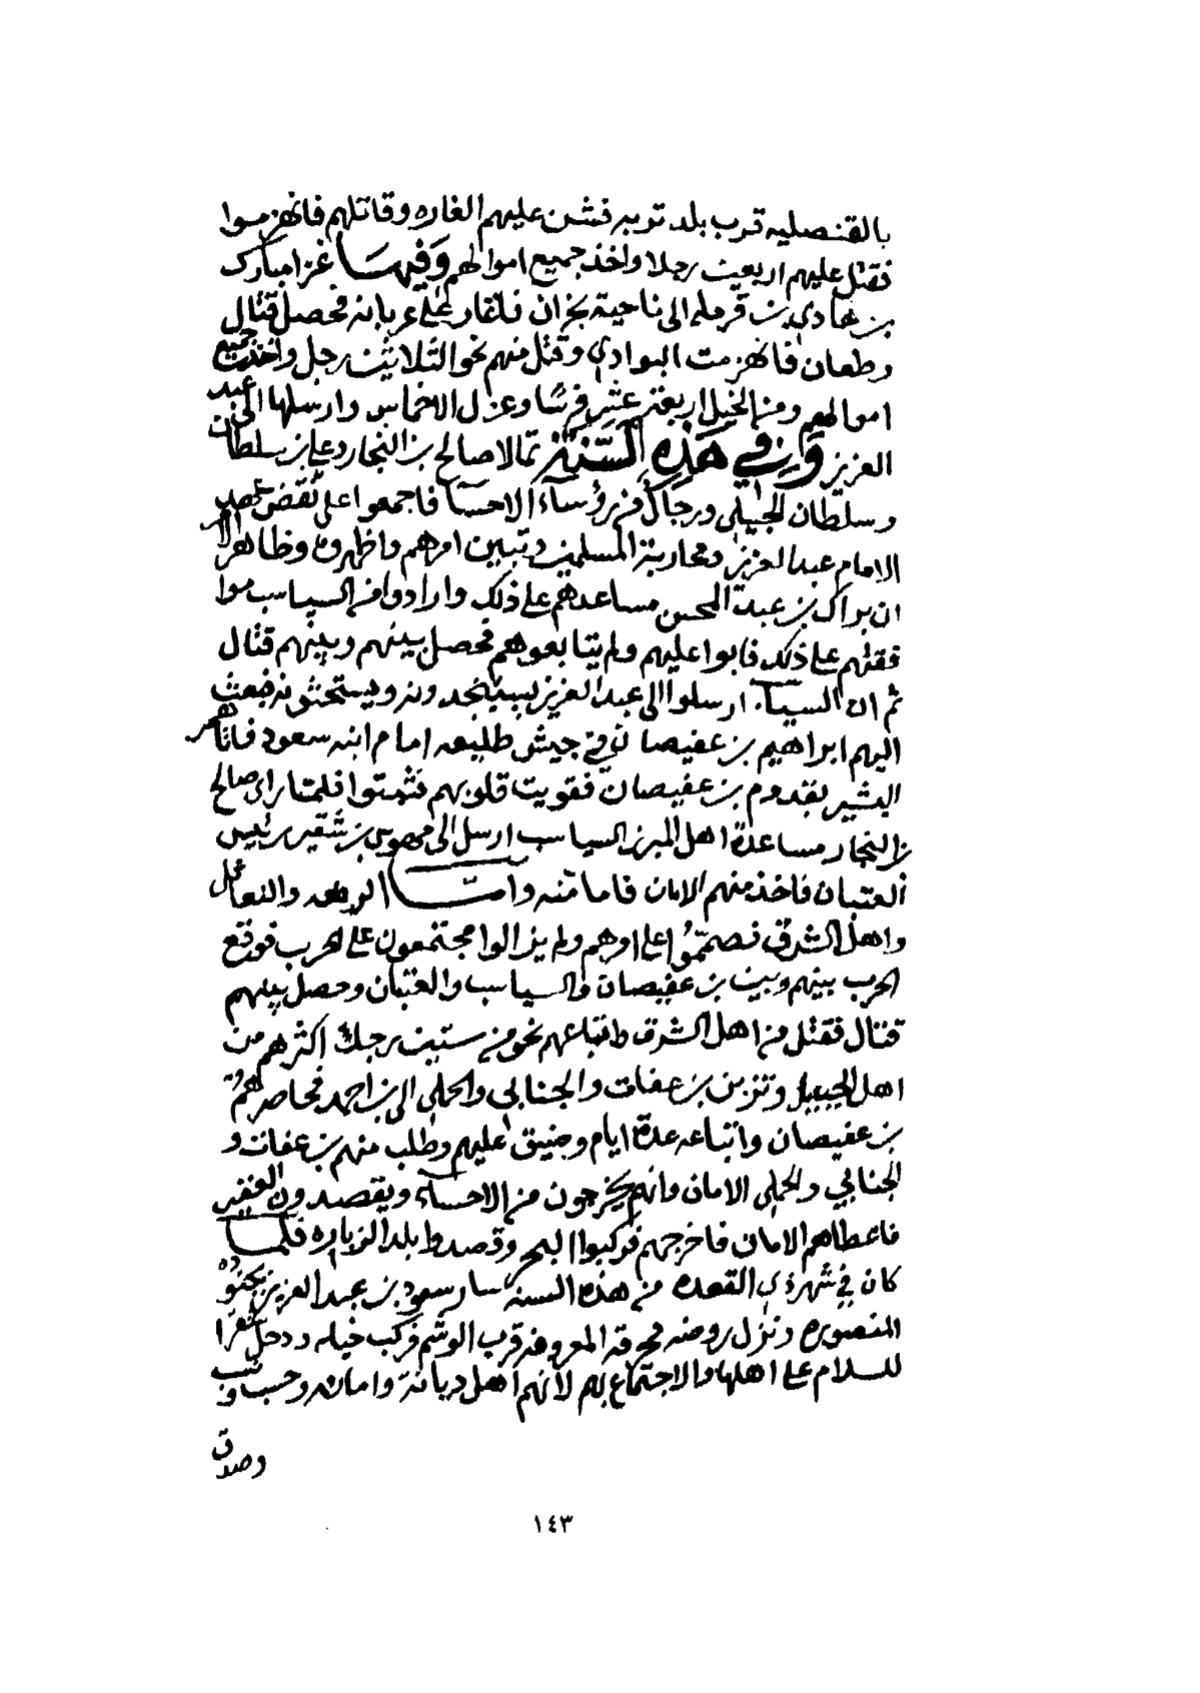 بالقنصليه قرب بلد تربه فشن عليهم الغاره وقاتلهم فانهزموا
فقتل عليهم اربعين رجلا واخذ جميع اموالهم وفيها غزا مبارك
بن هادي بن قرمله الى ناحية نجران فلتقا على عربانه فحصل قتال
وطعان فانهزمت البوادي وقتل منهم نحو الثلاثين رجل واخذت جميع
اموالهم ومن الخيل اربعة عشر فرسًا وعزل الاخماس وارسلها الى عبد
العزيز وفي هذه السنة تمالا صالح بن النجار وعلي بن سلطان
وسلطان الجبيلي ورجال من رؤساء الاحسا فاجمعوا على نقض عهد
الامام عبد العزيز ومحاربة المسلمين وتبين امرهم واظهروه وظاهر الامر
ان براك بن عبد المحسن مساعدهم على ذلك وارادوا من السياسب موا
فقتهم على ذلك فابوا عليهم ولم يتابعوهم فحصل بينهم وبينهم قتال
ثم ان السياسب ارسلوا الى عبد العزيز يستنجدونه ويستحثونه فبعث
اليهم ابراهيم بن عفيصان في جيش طليعه امام ابنه سعود فاتاهم
البشير بقدوم بن عفيصان فقويت قلوبهم فثبتوا فلمّا راى صالح
بن النجار مساعدة اهل المبرز السياسب ارسل الى مهوس بن شقير رئيس
العتبان فاخذ منهم الامان فامامنه وامّا الرفعه والنعاثل
واهل الشرق فصمّموا على امرهم ولم يزالوا مجتمعون على الحرب فوقع
الحرب بينهم وبين بن عفيصان والسياسب والعتبان وحصل بينهم
قتال فقتل من اهل الشرق واتباعهم نحو من ستين رجلا اكثرهم من
اهل الجبيل وتزبن بن عفات والجنابي والحملي الى بن احمد فحاصرهم
بن عفيصان واتباعه عدة ايام وضيق عليهم وطلب منهم بن عفات و
الجنابي والحملي الامان وانهم يخرجون من الاحساء ويقصدون العقير
فاعطاهم الامان فاخرجهم فركبوا البحر وقصدوا بلد الزباره فلمّا
كان في شهر ذي القعده من هذه السنه سار سعود بن عبد العزيز بجنوده
المنصوره ونزل روضه محرقة المعروفه قرب الوشم فركب خيله ودخل شقرا
للسلام على اهلها والاجتماع بهم لانهم اهل ديانة وامانه وحسب ونسب
وصدق
١٤٣